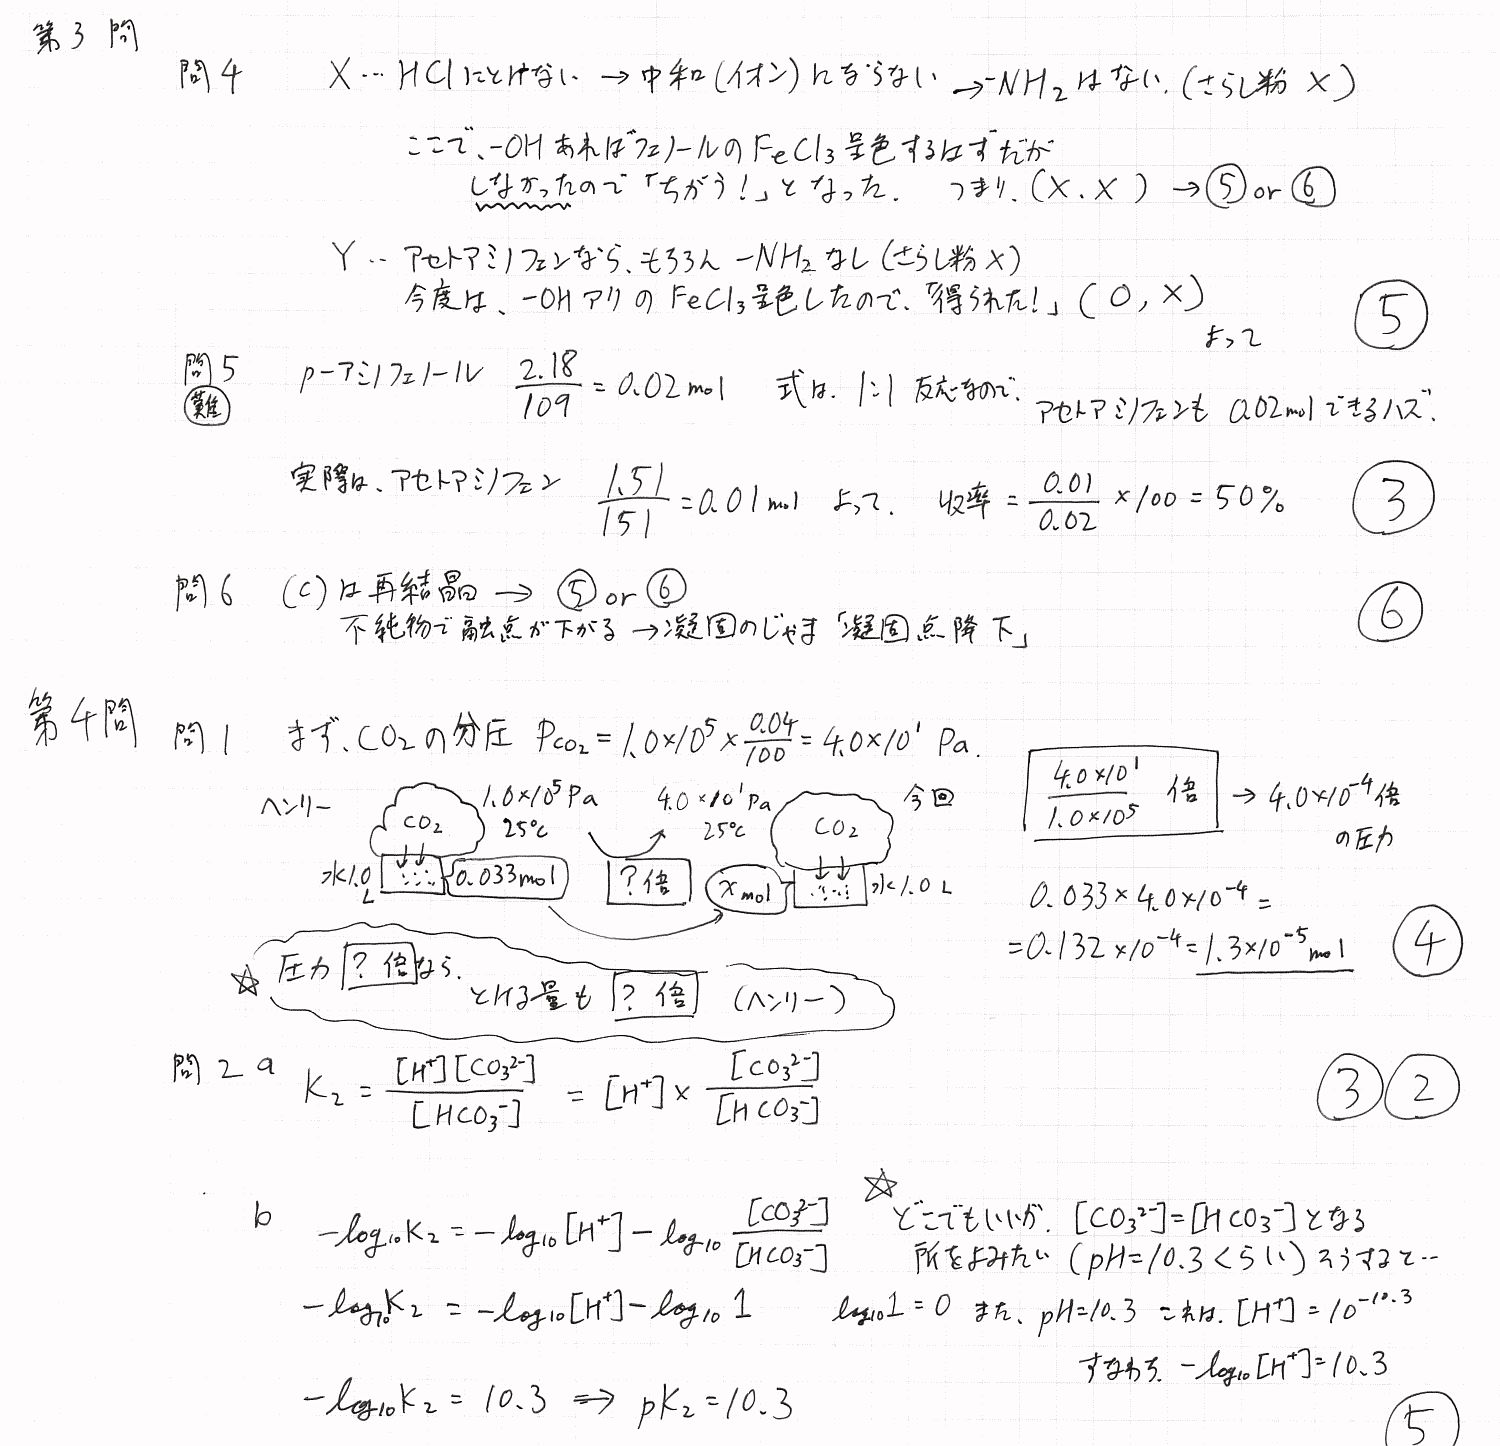 第3問
問4 X… HClにとけない → 中和(イオン)にならない → -NH₂はない.(さらし粉 X)
ここで、-OHあればフェノールのFeCl₃呈色するはずだが
しなかったので「ちがう!」となった. つまり.(X.X) → ⑤ or ⑥
Y‥ アセトアミノフェンなら、もちろん -NH₂なし(さらし粉X)
今度は、-OHアリのFeCl₃呈色したので、「得られた!」(O, X)
よって ⑤
問5 難 p-アミノフェノール 2.18/109 = 0.02mol 式は、1:1 反応なので、アセトアミノフェンも 0.02molできるハズ.
実際は、アセトアミノフェン 1.51/151 = 0.01mol よって. 収率 = 0.01/0.02 × 100 = 50% ③
問6 (C)は再結晶 → ⑤ or ⑥
不純物で融点が下がる → 凝固のじゃま「凝固点降下」 ⑥
第4問
問1 まず、CO₂の分圧 Pco₂ = 1.0×10⁵ × 0.04/100 = 4.0×10¹ Pa.
ヘンリー CO₂ 1.0×10⁵Pa 25℃
水1.0L 0.033mol
?倍
4.0×10¹Pa 25℃ CO₂ 今回
xmol 水1.0L
4.0×10¹/1.0×10⁵ 倍 → 4.0×10⁻⁴倍
の圧力
0.033×4.0×10⁻⁴ =
= 0.132×10⁻⁴ = 1.3×10⁻⁵mol ④
☆ 圧力 ?倍 なら、
とける量も ?倍 (ヘンリー)
問2 a K₂ = [H⁺][CO₃²⁻]/[HCO₃⁻] = [H⁺] × [CO₃²⁻]/[HCO₃⁻] ③ ②
b -log₁₀K₂ = -log₁₀[H⁺] - log₁₀ [CO₃²⁻]/[HCO₃⁻]
☆ どこでもいいが、[CO₃²⁻]=[HCO₃⁻]となる
所をよみたい (pH=10.3くらい) そうすると…
-log₁₀K₂ = -log₁₀[H⁺] - log₁₀ 1
log₁₀1 = 0 また、pH=10.3 これは、[H⁺] = 10⁻¹⁰·³
すなわち、-log₁₀[H⁺]=10.3
-log₁₀K₂ = 10.3 ⇒ pK₂ = 10.3
⑤